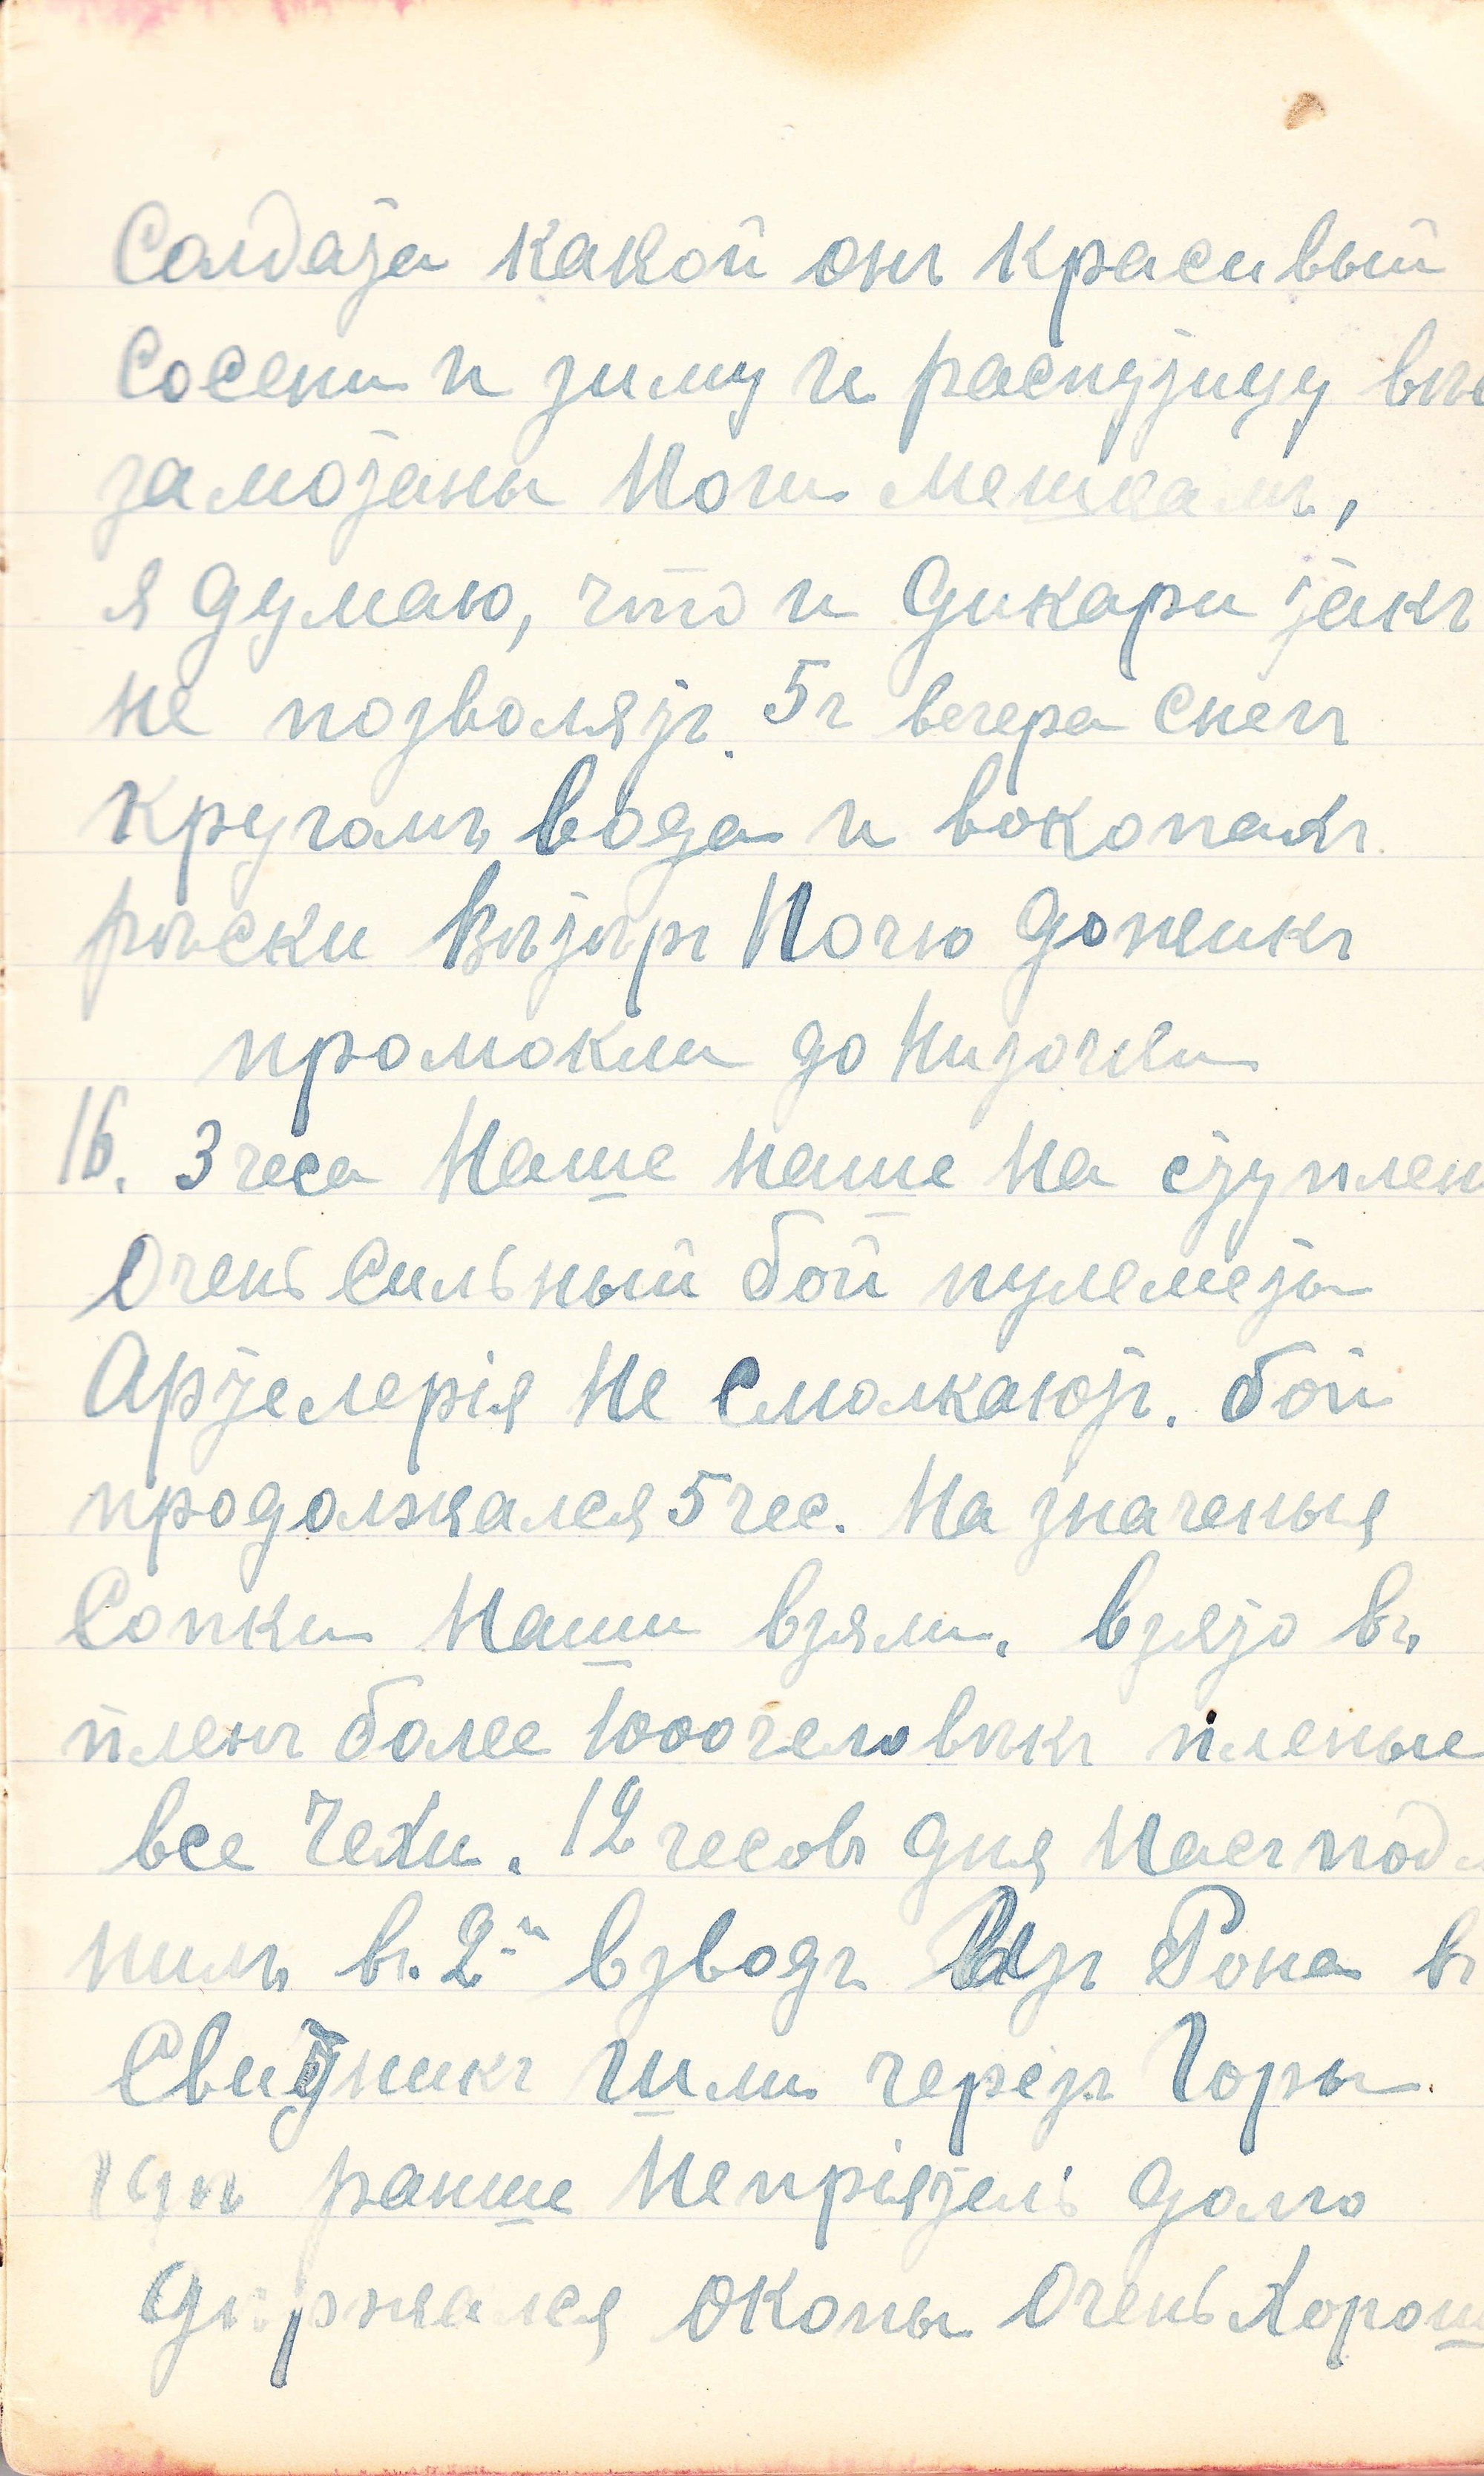 Солдата какой онъ красивый
Сосени и зиму и распутицу
замотаны Ноги мешкамъ,
я думаю, что и дикари такъ
не позволятъ. 5 г вечера Снегъ
кругомъ вода и вокопахъ
рѣски вѣтѣръ Ночю дожикъ
промокли до Низочки
16. 3 чеса Наше наше На ступлен
Очень Сильный бой пулеметы
Артелерія Не Смолкаютъ. бой
продолжался 5 чес. На значеныя
Сопки Наши взяли. взято въ
пленъ более 1000 человѣкъ пленые
все Чехи. 12 чесовъ дня Насъ под
нили въ 2-й взводъ Рона въ
Свидникъ Шли черезъ Горы.
гдѣ ранше Непріятель долго
дѣржался окопы Очень Хорош